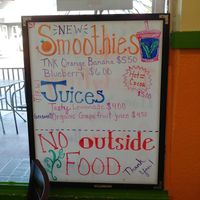 NEW
Smoothies
TNK Orange Banana $5.50
Blueberry $6.00
Hot or
Cocoa
$3.00
Juices
Tasty Lemonade $4.00
Organic Grapefruit juice $4.50
NO outside
FOOD
Thank
you!